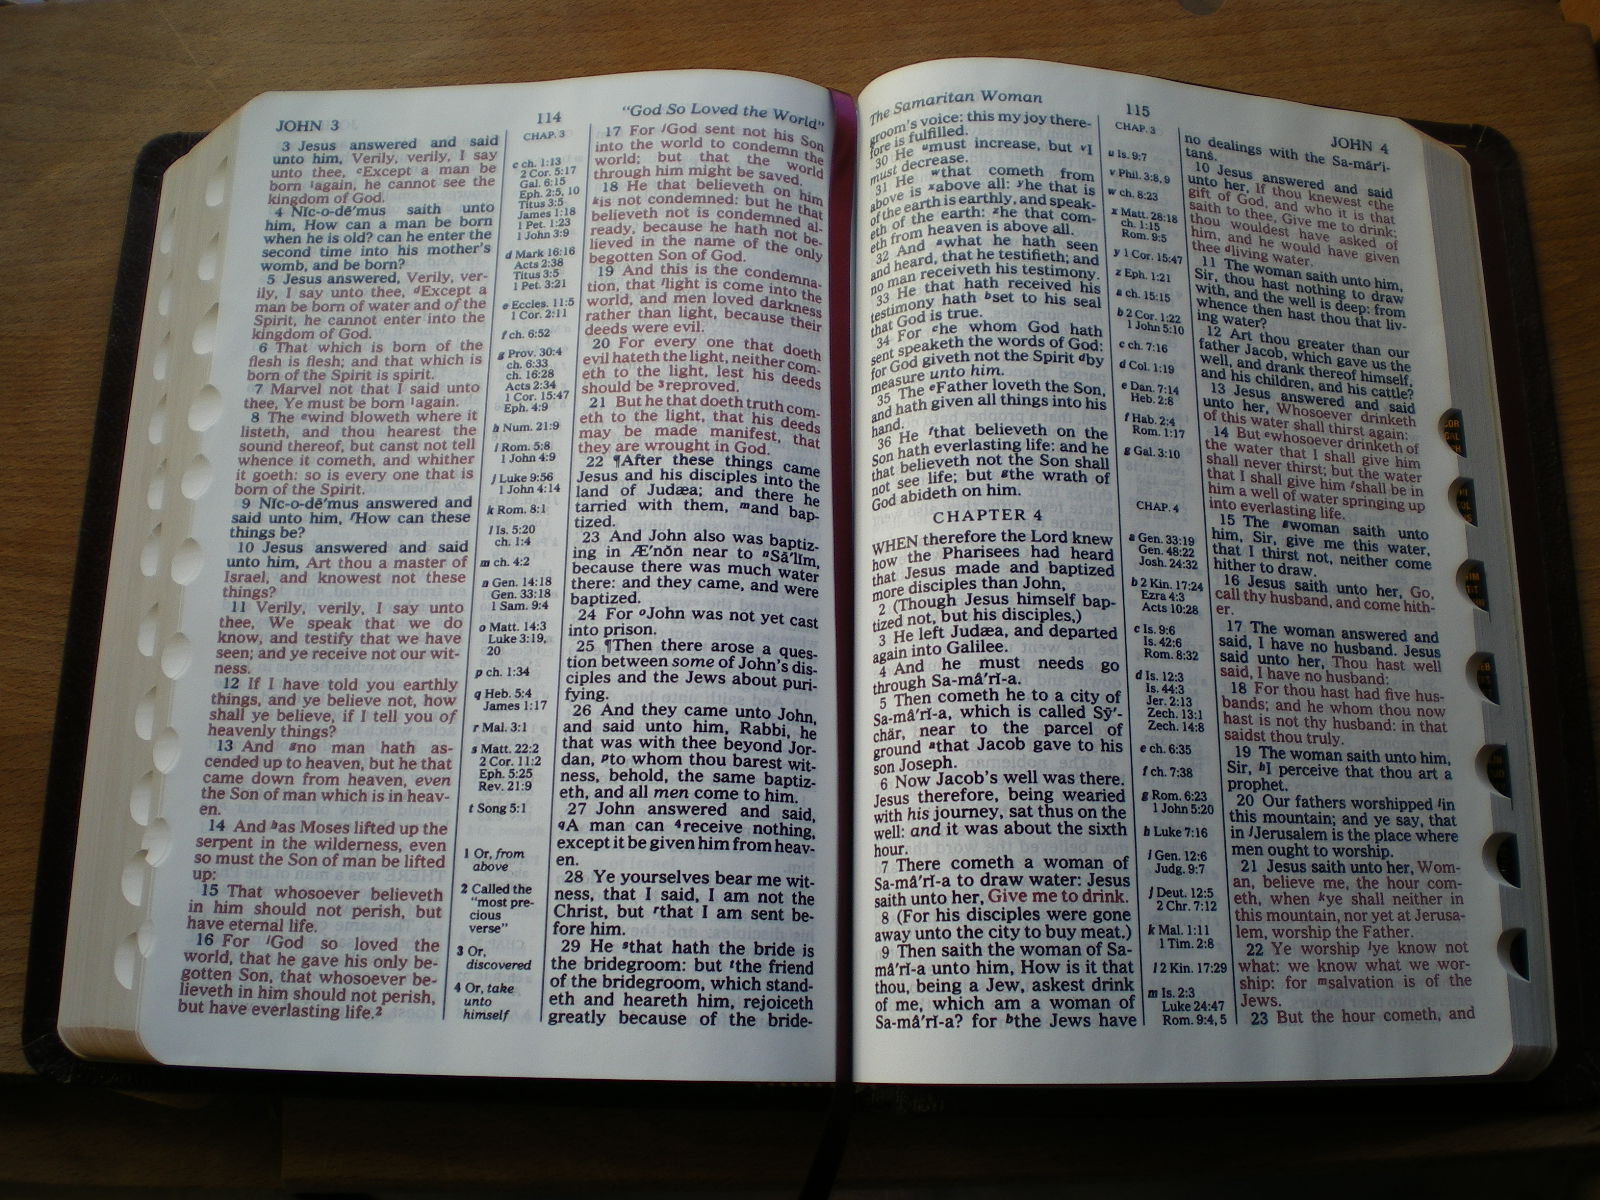 JOHN 3
114
"God So Loved the World"
3 Jesus answered and said
unto him, Verily, verily, I say
unto thee, cExcept a man be
born 1again, he cannot see the
kingdom of God.
4 Nĭc-o-dē′mus saith unto
him, How can a man be born
when he is old? can he enter the
second time into his mother's
womb, and be born?
5 Jesus answered, Verily, ver-
ily, I say unto thee, dExcept a
man be born of water and of the
Spirit, he cannot enter into the
kingdom of God.
6 That which is born of the
flesh is flesh; and that which is
born of the Spirit is spirit.
7 Marvel not that I said unto
thee, Ye must be born 1again.
8 The ewind bloweth where it
listeth, and thou hearest the
sound thereof, but canst not tell
whence it cometh, and whither
it goeth: so is every one that is
born of the Spirit.
9 Nĭc-o-dē′mus answered and
said unto him, fHow can these
things be?
10 Jesus answered and said
unto him, Art thou a master of
Israel, and knowest not these
things?
11 Verily, verily, I say unto
thee, We speak that we do
know, and testify that we have
seen; and ye receive not our wit-
ness.
12 If I have told you earthly
things, and ye believe not, how
shall ye believe, if I tell you of
heavenly things?
13 And gno man hath as-
cended up to heaven, but he that
came down from heaven, even
the Son of man which is in heav-
en.
14 And has Moses lifted up the
serpent in the wilderness, even
so must the Son of man be lifted
up:
15 That whosoever believeth
in him should not perish, but
have eternal life.
16 For iGod so loved the
world, that he gave his only be-
gotten Son, that whosoever be-
lieveth in him should not perish,
but have everlasting life.2
CHAP. 3
c ch. 1:13
2 Cor. 5:17
Gal. 6:15
Eph. 2:5, 10
Titus 3:5
James 1:18
1 Pet. 1:23
1 John 3:9
d Mark 16:16
Acts 2:38
Titus 3:5
1 Pet. 3:21
e Eccles. 11:5
1 Cor. 2:11
f ch. 6:52
g Prov. 30:4
ch. 6:33
ch. 16:28
Acts 2:34
1 Cor. 15:47
Eph. 4:9
h Num. 21:9
i Rom. 5:8
1 John 4:9
j Luke 9:56
1 John 4:14
k Rom. 8:1
l Is. 5:20
ch. 1:4
m ch. 4:2
n Gen. 14:18
Gen. 33:18
1 Sam. 9:4
o Matt. 14:3
Luke 3:19,
20
p ch. 1:34
q Heb. 5:4
James 1:17
r Mal. 3:1
s Matt. 22:2
2 Cor. 11:2
Eph. 5:25
Rev. 21:9
t Song 5:1
1 Or, from
above
2 Called the
"most pre-
cious
verse"
3 Or,
discovered
4 Or, take
unto
himself
17 For jGod sent not his Son
into the world to condemn the
world; but that the world
through him might be saved.
18 He that believeth on him
kis not condemned: but he that
believeth not is condemned al-
ready, because he hath not be-
lieved in the name of the only
begotten Son of God.
19 And this is the condemna-
tion, that llight is come into the
world, and men loved darkness
rather than light, because their
deeds were evil.
20 For every one that doeth
evil hateth the light, neither com-
eth to the light, lest his deeds
should be 3reproved.
21 But he that doeth truth com-
eth to the light, that his deeds
may be made manifest, that
they are wrought in God.
22 ¶After these things came
Jesus and his disciples into the
land of Judæa; and there he
tarried with them, mand bap-
tized.
23 And John also was baptiz-
ing in Æ′nŏn near to nSā′lĭm,
because there was much water
there: and they came, and were
baptized.
24 For oJohn was not yet cast
into prison.
25 ¶Then there arose a ques-
tion between some of John's dis-
ciples and the Jews about puri-
fying.
26 And they came unto John,
and said unto him, Rabbi, he
that was with thee beyond Jor-
dan, pto whom thou barest wit-
ness, behold, the same baptiz-
eth, and all men come to him.
27 John answered and said,
qA man can 4receive nothing,
except it be given him from heav-
en.
28 Ye yourselves bear me wit-
ness, that I said, I am not the
Christ, but rthat I am sent be-
fore him.
29 He sthat hath the bride is
the bridegroom: but tthe friend
of the bridegroom, which stand-
eth and heareth him, rejoiceth
greatly because of the bride-
The Samaritan Woman
115
JOHN 4
groom's voice: this my joy there-
fore is fulfilled.
30 He umust increase, but vI
must decrease.
31 He wthat cometh from
above is xabove all: yhe that is
of the earth is earthly, and speak-
eth of the earth: zhe that com-
eth from heaven is above all.
32 And awhat he hath seen
and heard, that he testifieth; and
no man receiveth his testimony.
33 He that hath received his
testimony hath bset to his seal
that God is true.
34 For che whom God hath
sent speaketh the words of God:
for God giveth not the Spirit dby
measure unto him.
35 The eFather loveth the Son,
and hath given all things into his
hand.
36 He fthat believeth on the
Son hath everlasting life: and he
that believeth not the Son shall
not see life; but gthe wrath of
God abideth on him.
CHAPTER 4
WHEN therefore the Lord knew
how the Pharisees had heard
that Jesus made and baptized
more disciples than John,
2 (Though Jesus himself bap-
tized not, but his disciples,)
3 He left Judæa, and departed
again into Galilee.
4 And he must needs go
through Sa-mâ′rĭ-a.
5 Then cometh he to a city of
Sa-mâ′rĭ-a, which is called Sȳ′-
chär, near to the parcel of
ground athat Jacob gave to his
son Joseph.
6 Now Jacob's well was there.
Jesus therefore, being wearied
with his journey, sat thus on the
well: and it was about the sixth
hour.
7 There cometh a woman of
Sa-mâ′rĭ-a to draw water: Jesus
saith unto her, Give me to drink.
8 (For his disciples were gone
away unto the city to buy meat.)
9 Then saith the woman of Sa-
mâ′rĭ-a unto him, How is it that
thou, being a Jew, askest drink
of me, which am a woman of
Sa-mâ′rĭ-a? for bthe Jews have
CHAP. 3
u Is. 9:7
v Phil. 3:8, 9
w ch. 8:23
x Matt. 28:18
ch. 1:15
Rom. 9:5
y 1 Cor. 15:47
z Eph. 1:21
a ch. 15:15
b 2 Cor. 1:22
1 John 5:10
c ch. 7:16
d Col. 1:19
e Dan. 7:14
Heb. 2:8
f Hab. 2:4
Rom. 1:17
g Gal. 3:10
CHAP. 4
a Gen. 33:19
Gen. 48:22
Josh. 24:32
b 2 Kin. 17:24
Ezra 4:3
Acts 10:28
c Is. 9:6
Is. 42:6
Rom. 8:32
d Is. 12:3
Is. 44:3
Jer. 2:13
Zech. 13:1
Zech. 14:8
e ch. 6:35
f ch. 7:38
g Rom. 6:23
1 John 5:20
h Luke 7:16
i Gen. 12:6
Judg. 9:7
j Deut. 12:5
2 Chr. 7:12
k Mal. 1:11
1 Tim. 2:8
l 2 Kin. 17:29
m Is. 2:3
Luke 24:47
Rom. 9:4, 5
no dealings with the Sa-măr′ĭ-
tans.
10 Jesus answered and said
unto her, If thou knewest cthe
gift of God, and who it is that
saith to thee, Give me to drink;
thou wouldest have asked of
him, and he would have given
thee dliving water.
11 The woman saith unto him,
Sir, thou hast nothing to draw
with, and the well is deep: from
whence then hast thou that liv-
ing water?
12 Art thou greater than our
father Jacob, which gave us the
well, and drank thereof himself,
and his children, and his cattle?
13 Jesus answered and said
unto her, Whosoever drinketh
of this water shall thirst again:
14 But ewhosoever drinketh of
the water that I shall give him
shall never thirst; but the water
that I shall give him fshall be in
him a well of water springing up
into everlasting life.
15 The gwoman saith unto
him, Sir, give me this water,
that I thirst not, neither come
hither to draw.
16 Jesus saith unto her, Go,
call thy husband, and come hith-
er.
17 The woman answered and
said, I have no husband. Jesus
said unto her, Thou hast well
said, I have no husband:
18 For thou hast had five hus-
bands; and he whom thou now
hast is not thy husband: in that
saidst thou truly.
19 The woman saith unto him,
Sir, hI perceive that thou art a
prophet.
20 Our fathers worshipped iin
this mountain; and ye say, that
in jJerusalem is the place where
men ought to worship.
21 Jesus saith unto her, Wom-
an, believe me, the hour com-
eth, when kye shall neither in
this mountain, nor yet at Jerusa-
lem, worship the Father.
22 Ye worship lye know not
what: we know what we wor-
ship: for msalvation is of the
Jews.
23 But the hour cometh, and